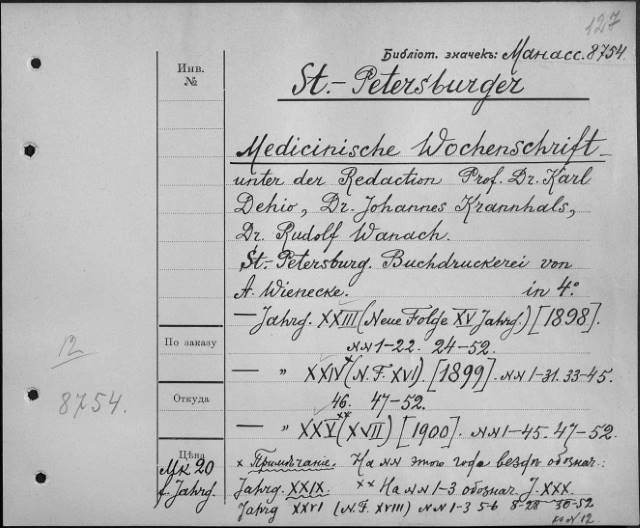 127
Библіот. значекъ: Манасс. 8754.
Инв.
№
St.-Petersburger
Medicinische Wochenschrift
unter der Redaction Prof. Dr. Karl
Dehio, Dr. Johannes Krannhals,
Dr. Rudolf Wanach.
St.-Petersburg. Buchdruckerei von
A. Wienecke. in 4º
— Jahrg. XXIII (Neue Folge XV Jahrg.) [1898].
№№ 1-22. 24-52.
По заказу
12
8754.
— „ XXIV× (N. F. XVI). [1899]. №№ 1-31. 33-45.
46. 47-52.
Откуда
— „ XXV×× (XVII) [1900]. №№ 1-45. 47-52.
Цѣна
Mk 20
f. Jahrg.
× Примѣчаніе. На №№ этого года вездѣ обознач.:
Jahrg. XXIX. ×× На №№ 1-3 обознач. J. XXX.
Jahrg XXVI (N. F. XVIII) №№ 1-3 5-6 8-28 30-52